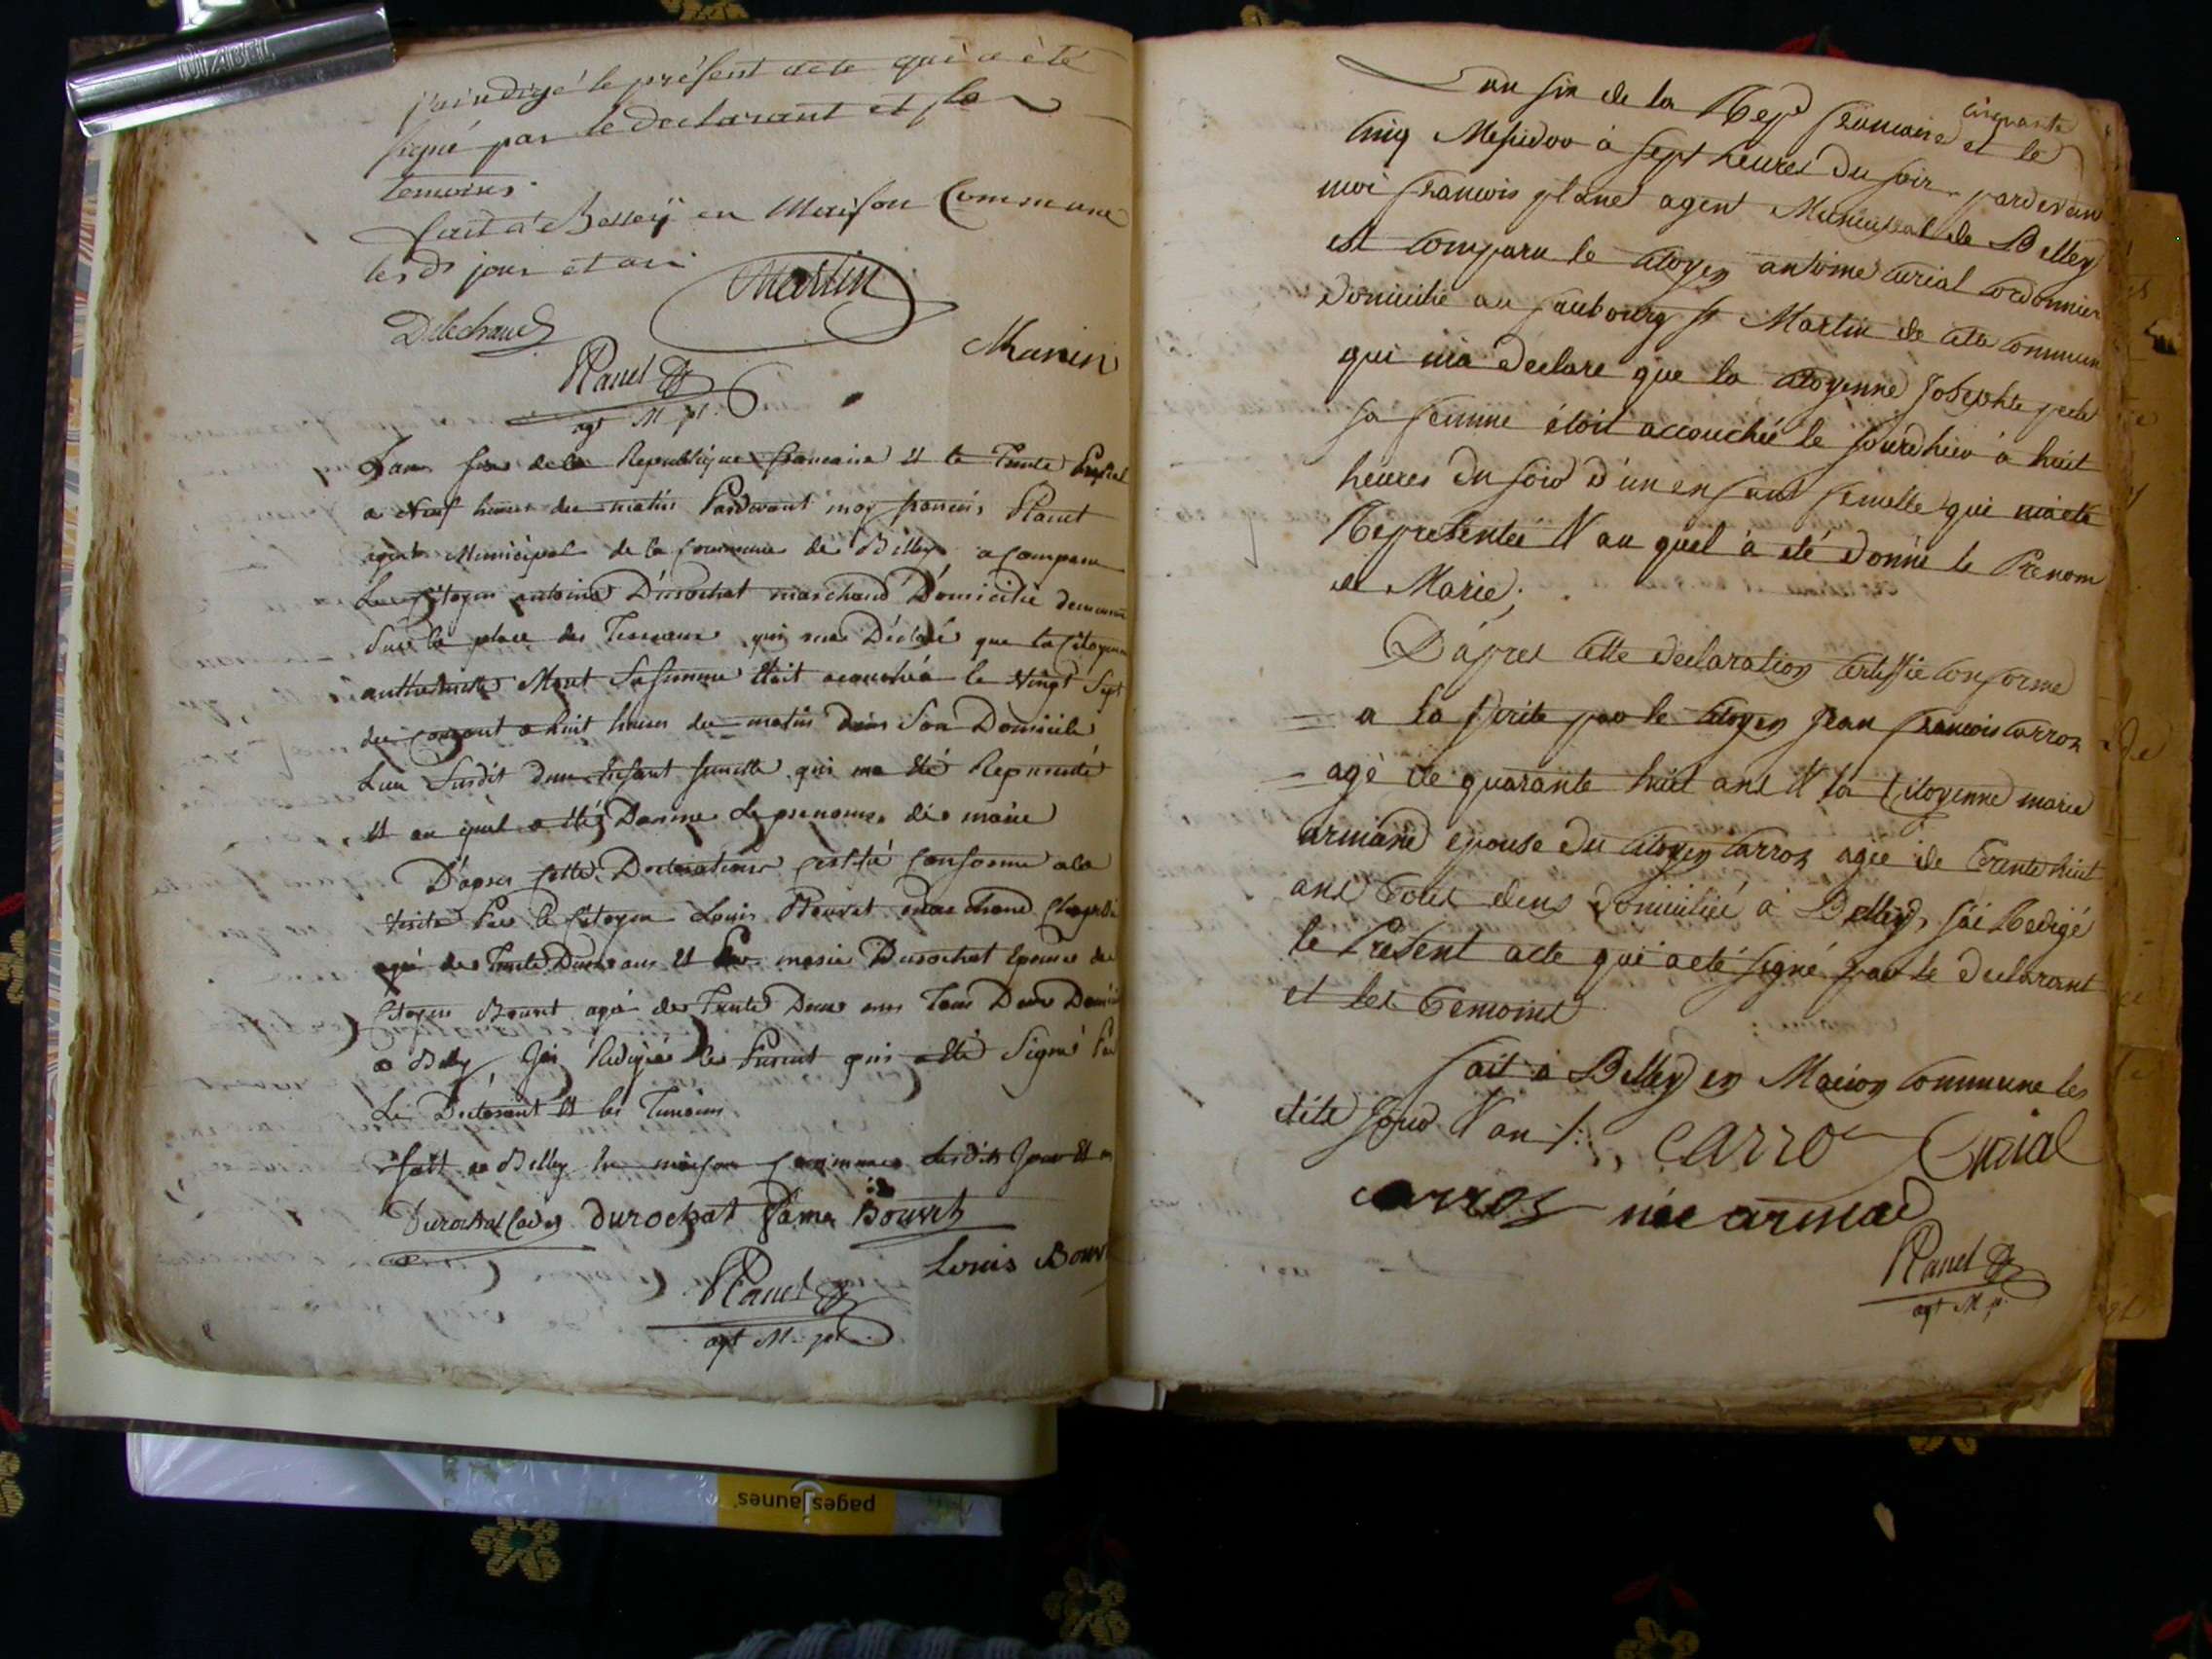 j'ai redigé le présent acte qui a été
signé par le declarant et les
temoins.
fait à Belley en Maison Commune
les dt jour et an
Martin
Delechaud
Manin
Planet
agt M. pl.
L'an six de la Republique francaise et le Trente Prairial
a Neuf heures du matin Pardevant moy francois Planet
agent Municipal de la Commune de Belley a Comparu
Le Citoyen antoine Durochat marchand Domicilié
Sur la place des Terreaux qui ma Déclaré que la Citoyenne
Mont Sa femme Etait accouchée le Vingt Sept
du Courant a huit heures du matin dans Son Domicile
Lieu Susdit d'un Enfant femelle qui ma été Representé
et au quel a été Donné Le prenom de marie
D'apres Cette Declaration Certifié Conforme a la
Visite Par le Citoyen Louis Bouvet marchand
agé de Trente Deux ans et Par marie Durochat Epouse du
Citoyen Bouvet agé de Trente Deux ans Tous Deux
a Belley, J'ai Redigé le Present qui a été Signé Par
Le Déclarant et les Temoins
fait a Belley En maison Commune Lesdits Jour et an
Durochat durochat fame Bouvet
Louis Bouvet
Planet
agt M. pl.
L'an six de la Repe francaise et le
cinquante
Cinq Messidor à sept heures du soir pardevan
moi francois planet agent Municipal de Belley
est comparu le citoyen antoine curial cordonnier
domicilié au faubourg st Martin de cete commun
qui m'a declaré que la citoyenne Josephte
sa femme étoit accouchée le jourdhier à huit
heures du soir d'un enfant femelle qui m'a eté
Representée & au quel à eté donné le Prenom
de Marie;
D'apres cette declaration certiffie conforme
= a la ferite par le citoyen jean francois carron
= agé de quarante huit ans & la Citoyenne marie
armand epouse du citoyen carron agée de trente huit
ans tous deus domiciliée à Belley, j'ai Redigé
le Present acte qui a eté signé par le declarant
et les temoins
fait à Belley en Maison commune les
dits jour & an
Carron Curial
carron née armad
Planet
agt M. p.
pagesjaunes